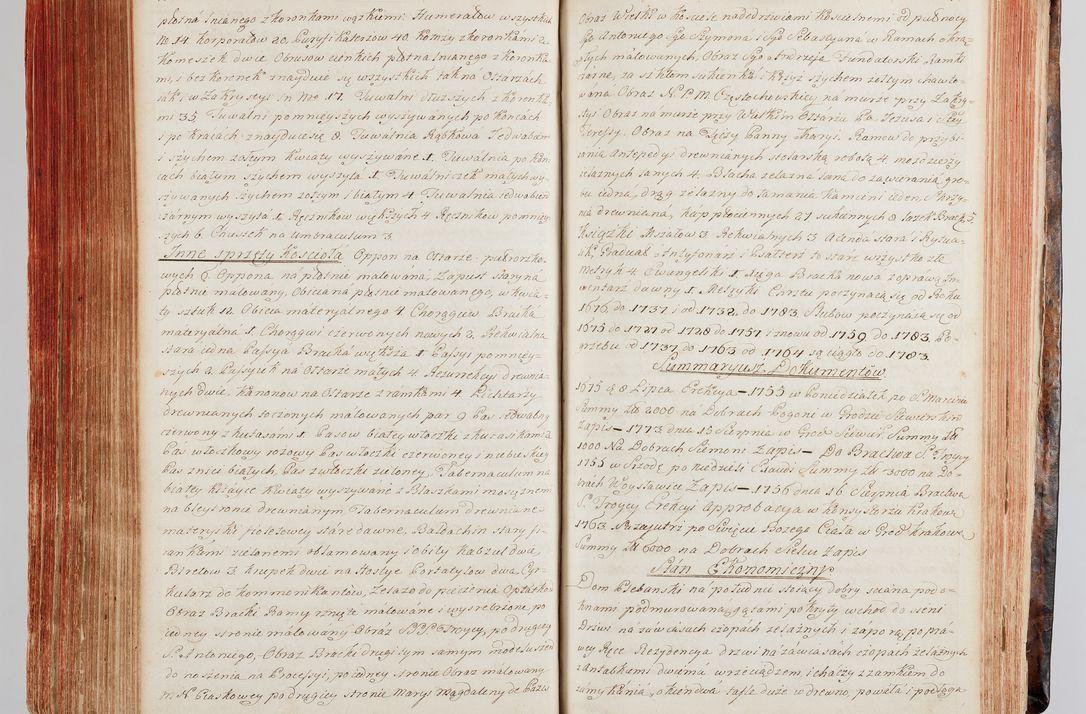 płotna lnianego z koronkami wązkiemi. Humerałow wszystkich
No 14. Korporałow 20. Puryfikaterzow 40. Komzy z koronkami 2
Komeszek dwie Obrusow cienkich płotna lnianego z koronka-
mi, i bez koronek znayduie się wszystkich tak na Ołtarzach,
iak w Zakrystyi in Nro 17. Tuwalni dłuższych z koronka-
mi 35 Tuwalni pomnieyszych wyszywanych po koncach
i po kraiach znayduie się 8. Tuwalnia Rąbkowa Jedwabiem
i szychem żołtym kwiaty wyszywane 1. Tuwalnia po kon-
cach białym szychem wyszyta 1. Tuwalniczek małych wy-
szywanych szychem żołtym i białym 4 Tuwalnia iedwabiem
czarnym wyszyta 1. Ręcznikow większych 4. Ręcznikow pomniey-
szych 6. Chustek na Umbraculum 3.
Inne sprzęty Kościoła Oppon na Ołtarze pułborszko-
wych 6 Oppona na płotnie malowana, Zapust stary na
płotnie malowany, Obicia na płotnie malowanego, w kwia-
ty sztuk 12. Obicia materyalnego 4 Chorągiew Bracka
materyalna 1. Chorągwi czerwonych nowych 2, Rekwialna
stara iedna Passya Bracka większa 1. Passyi pomniey-
szych 2. Passyiek na Ołtarze małych 4. Rezurekcyi drewnia-
nych dwie, Kanonow na Ołtarze z ramkami 4 Lichtarzy
drewnianych toczonych malowanych par 9 Pas iedwabny
czerwony z kutasami 1. Pasow białey włoczki z kutasikami 2
Pas włoczkowy rożowy Pas włoczki czerwoney i niebieskiey
Pas znici białych, Pas z włoczki zieloney, Tabernaculum na
białey kitayce kwiaty wyszywane z Blaszkami mosiężnemi
na bleystronie drewnianym Tabernaculum drewniane
materyiki fioletowey stare dawne. Baldachin stary fi-
rankami zielonemi oblamowany i obity kabzul dwa
Biretow 3. krupek dwie na Hostye Portatylow dwa Cyr-
kularz do kommonikantow, Zelazo do pieczenia Opłatkow
Obraz Bracki Ramy rznięte malowane i wysrebrzone, po
iedney stronie malowany Obraz SSS Troycy, po drugiey
S. Antoniego, Obraz Bracki drugi tym samym modelluszem
do noszenia na Processyi, po iedney stronie Obraz malowany
m. N. Piaskowey po drugiey stronie Maryi Magdaleny de Pazis
Obraz Wielki w Kościele nadedrzwiami kościelnemi od pułnocy
Sgo Antoniego Sgo Szymona i Sgo Sebastyana w Ramach okrą-
głych malowanych, Obraz Sgo Andrzeja Fundatorski Ramki
czarne, za szkłem sukienka i krzyż szychem żołtym hawto-
wana Obraz N. P. M. Częstochowskiey na murze przy Zakry-
styi Obraz na murze przy Wielkim Ołtarzu Pa. Jezusa i Stey
Teressy. Obraz na Tęczy Panny Maryi. Ramow do przybi-
iania Antepedyi drewnianych stolarską robotą 4. mozdzierzy
żelaznych lanych 4. Blacha żelazna lana, do zawierania gro-
bu iedna, drąg żelazny do łamania kamieni ieden, Skrzy-
nia drewniana, kap płociennych 27 sukiennych 8 Łozek Brack. 5
Książki Mszałow 3. Rekwialnych 3 Agenda stara i Rytua-
ał, Graduał Antyfonarz i Psałterz to stare wszystko złe
Metryk 4 Ewangeliki 1. xięga Bracka nowa z oprawą In-
wentarz dawny 1. Metryki Chrztu poczynaią się od Roku
1676 do 1737 i od 1738, do 1783 Slubow poczynaią się od
1675 do 1727 od 1728 do 1757. i znowu od 1759 do 1783. Po-
grzebu od 1737. do 1763 od 1764 są ciągło do 1783.
Summaryusz Dokumentow
1675 d. 8 Lipca Erekcya – 1755 w Poniedziałek po S. Marcinie
Summy Zł 2000 na Dobrach Pogoni w Grodzie Siewierskim
Zapis – 1773 dnia 13 Sierpnia w Grod. Siewier. Summy Zł
1000 Na Dobrach Siemoni Zapis – Da Bractwa S. Troycy
1755 w Srzodę po niedzieli Exaudi Summy Zł 3000 na Do-
brach Woysławice Zapis – 1756 dnia 16. Sierpnia Bractwa
S. Troycy Erekcyi Approbacya w Konsystorzu Krakow.
1763 Nazaiutrz po Swięcie Bozego Ciała w Grod. Krakow.
Summy Zł 6000 na Dobrach Sielcu Zapis
Stan Ekonomiczny
Dom Plebanski na południe stoiący dobry sciana pod o-
knami podmurowana, gątami pokryty wchod do sieni
Drzwi na zawiasach czopach żelaznych i zaporą, po pra-
wey Ręce Rezydencya drzwi na zawiasach czopach żelaznych
z antabkiem dwiema wrzeciądzem i chaczy z zamkiem do
zamykania, okien dwa tafle duże w drewno, powała i podłoga